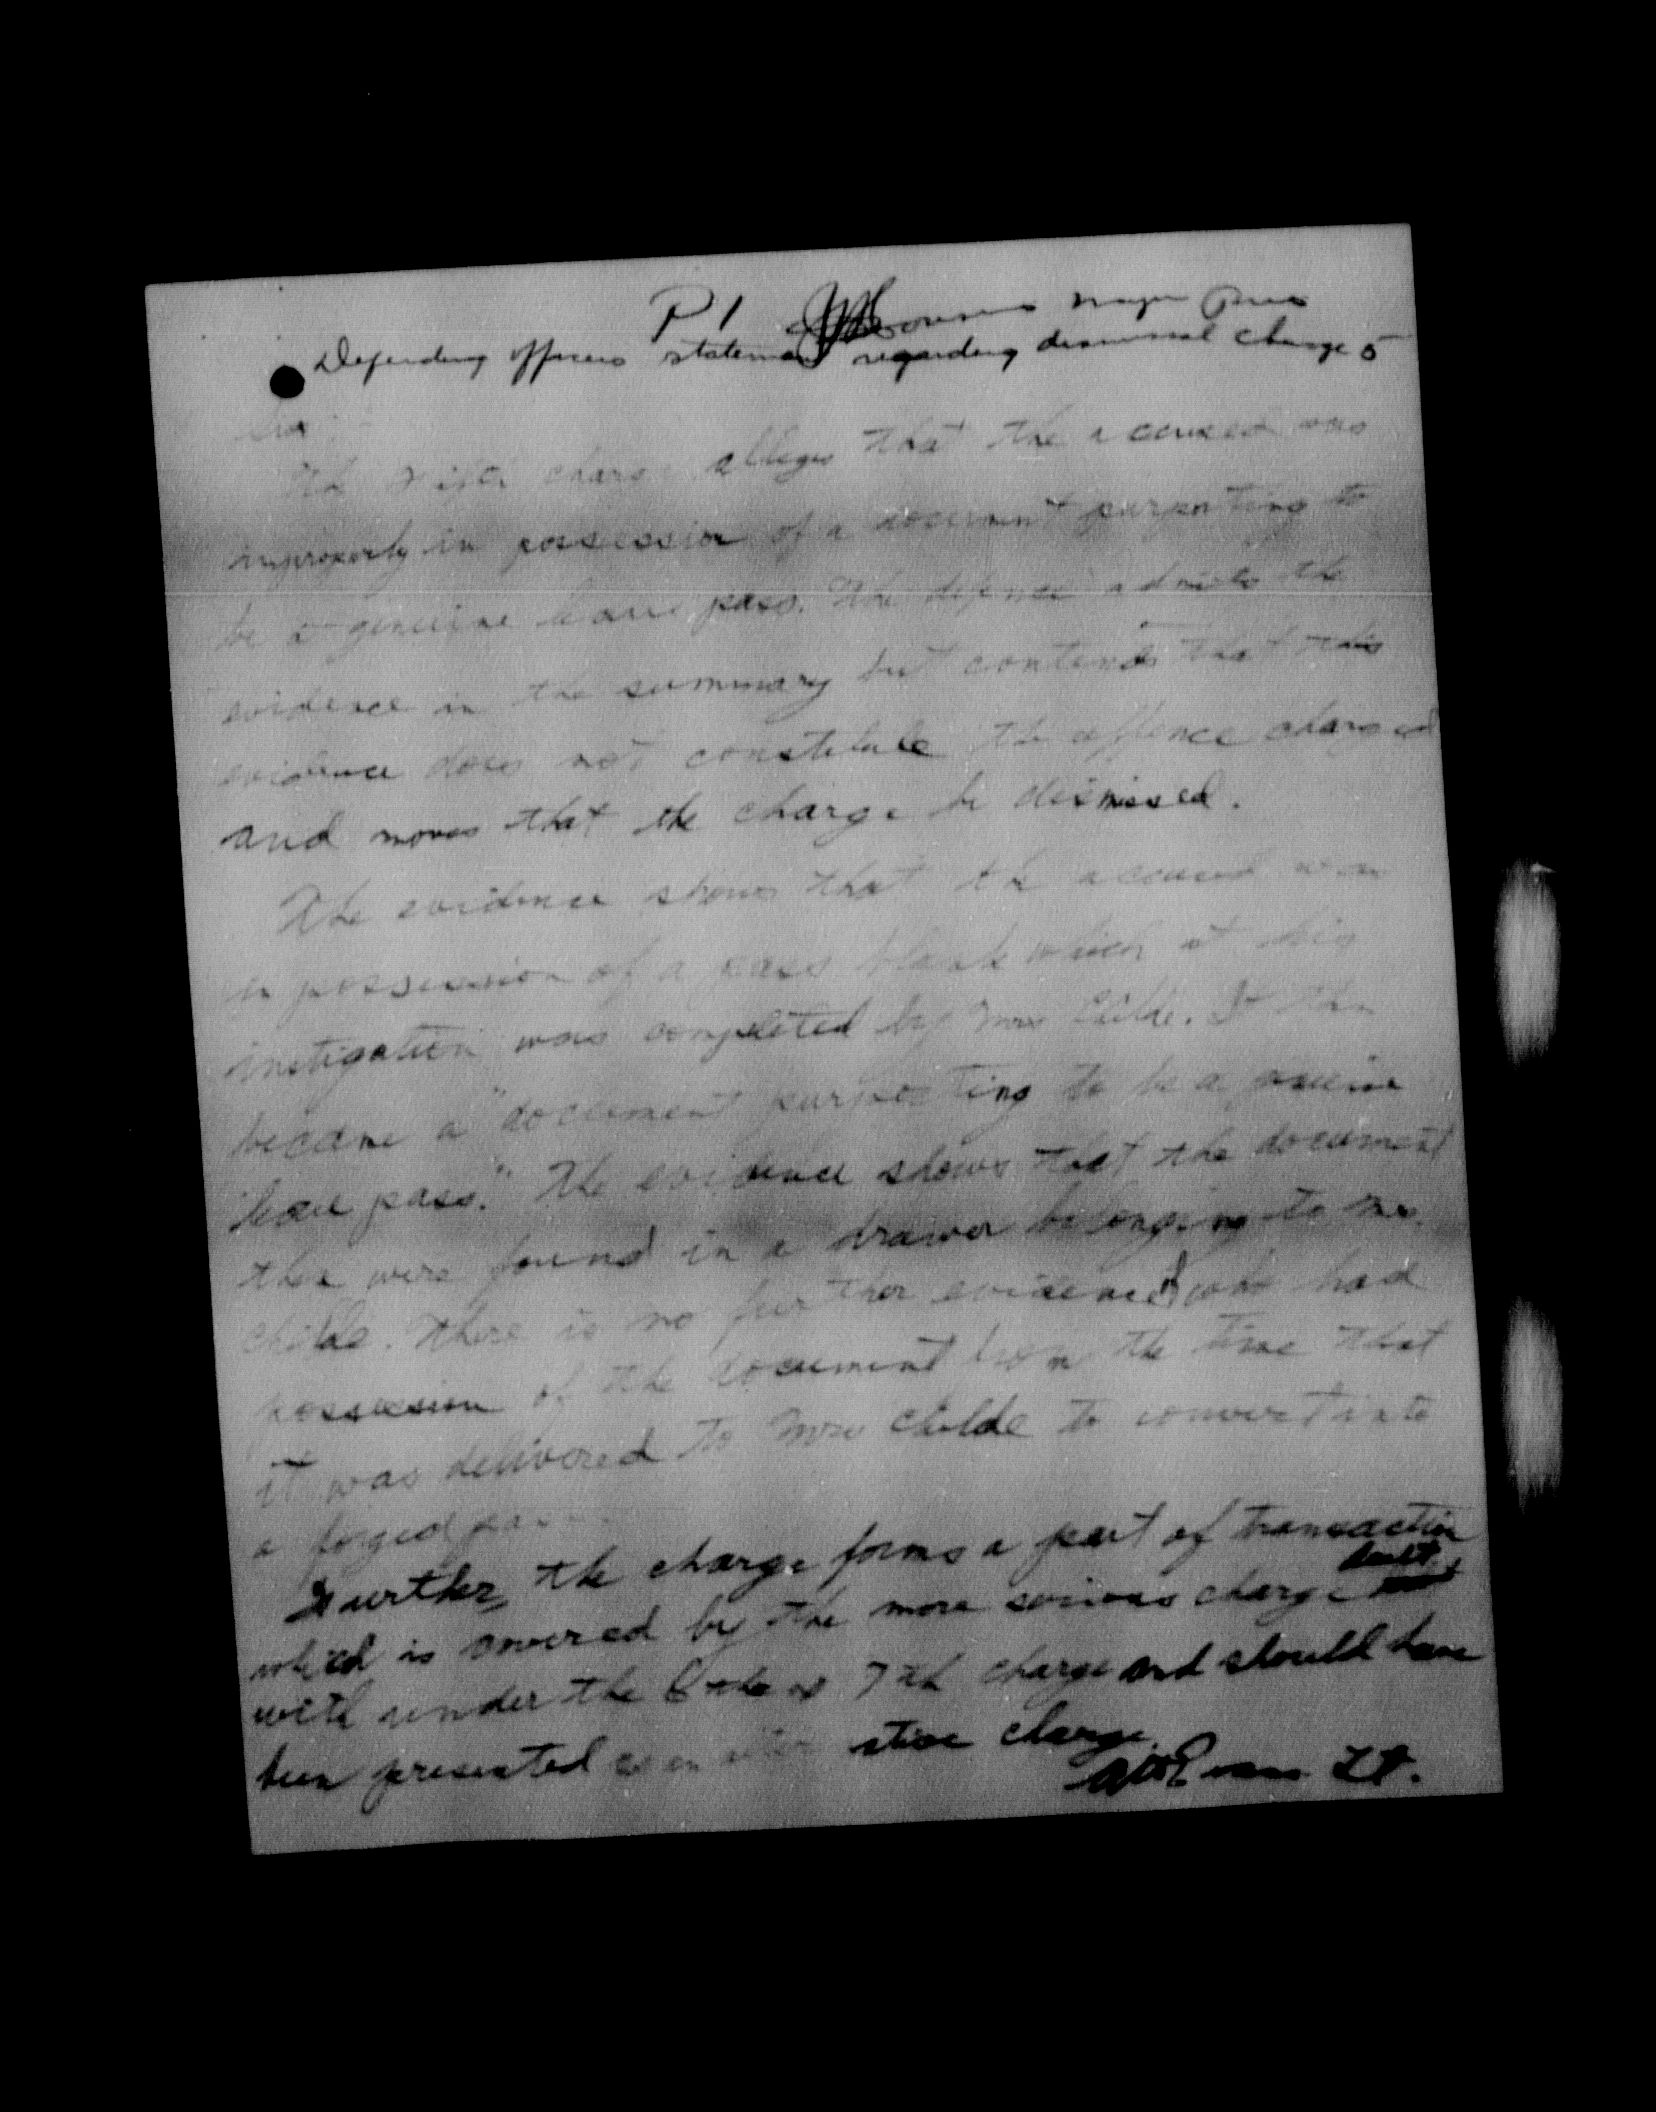 P1 Major Pres
Defending officers statement regarding dismissal charge 5
Sir
The Fifth charge alleges that the accused was
improperly in possession of a document purporting to
be a genuine leave pass. The defence admits the
evidence in the summary but contends that this
evidence does not constitute the offence charged
and moves that the charge be dismissed.
The evidence shows that the accused was
in possession of a pass blank which at his
instigation was completed by Mrs Childe. It then
became a "document purporting to be a genuine
leave pass." The evidence shows that the document
then were found in a drawer belonging to Mrs.
Childe. There is no further evidence who had
possession of the document from the time that
it was delivered to Mrs Childe to convert into
a forged pass.
Further, the charge forms a part of transaction
which is covered by the more serious charge dealt
with under the 6th or 7th charge and should have
been presented as an alternative charge.
Evans Lt.